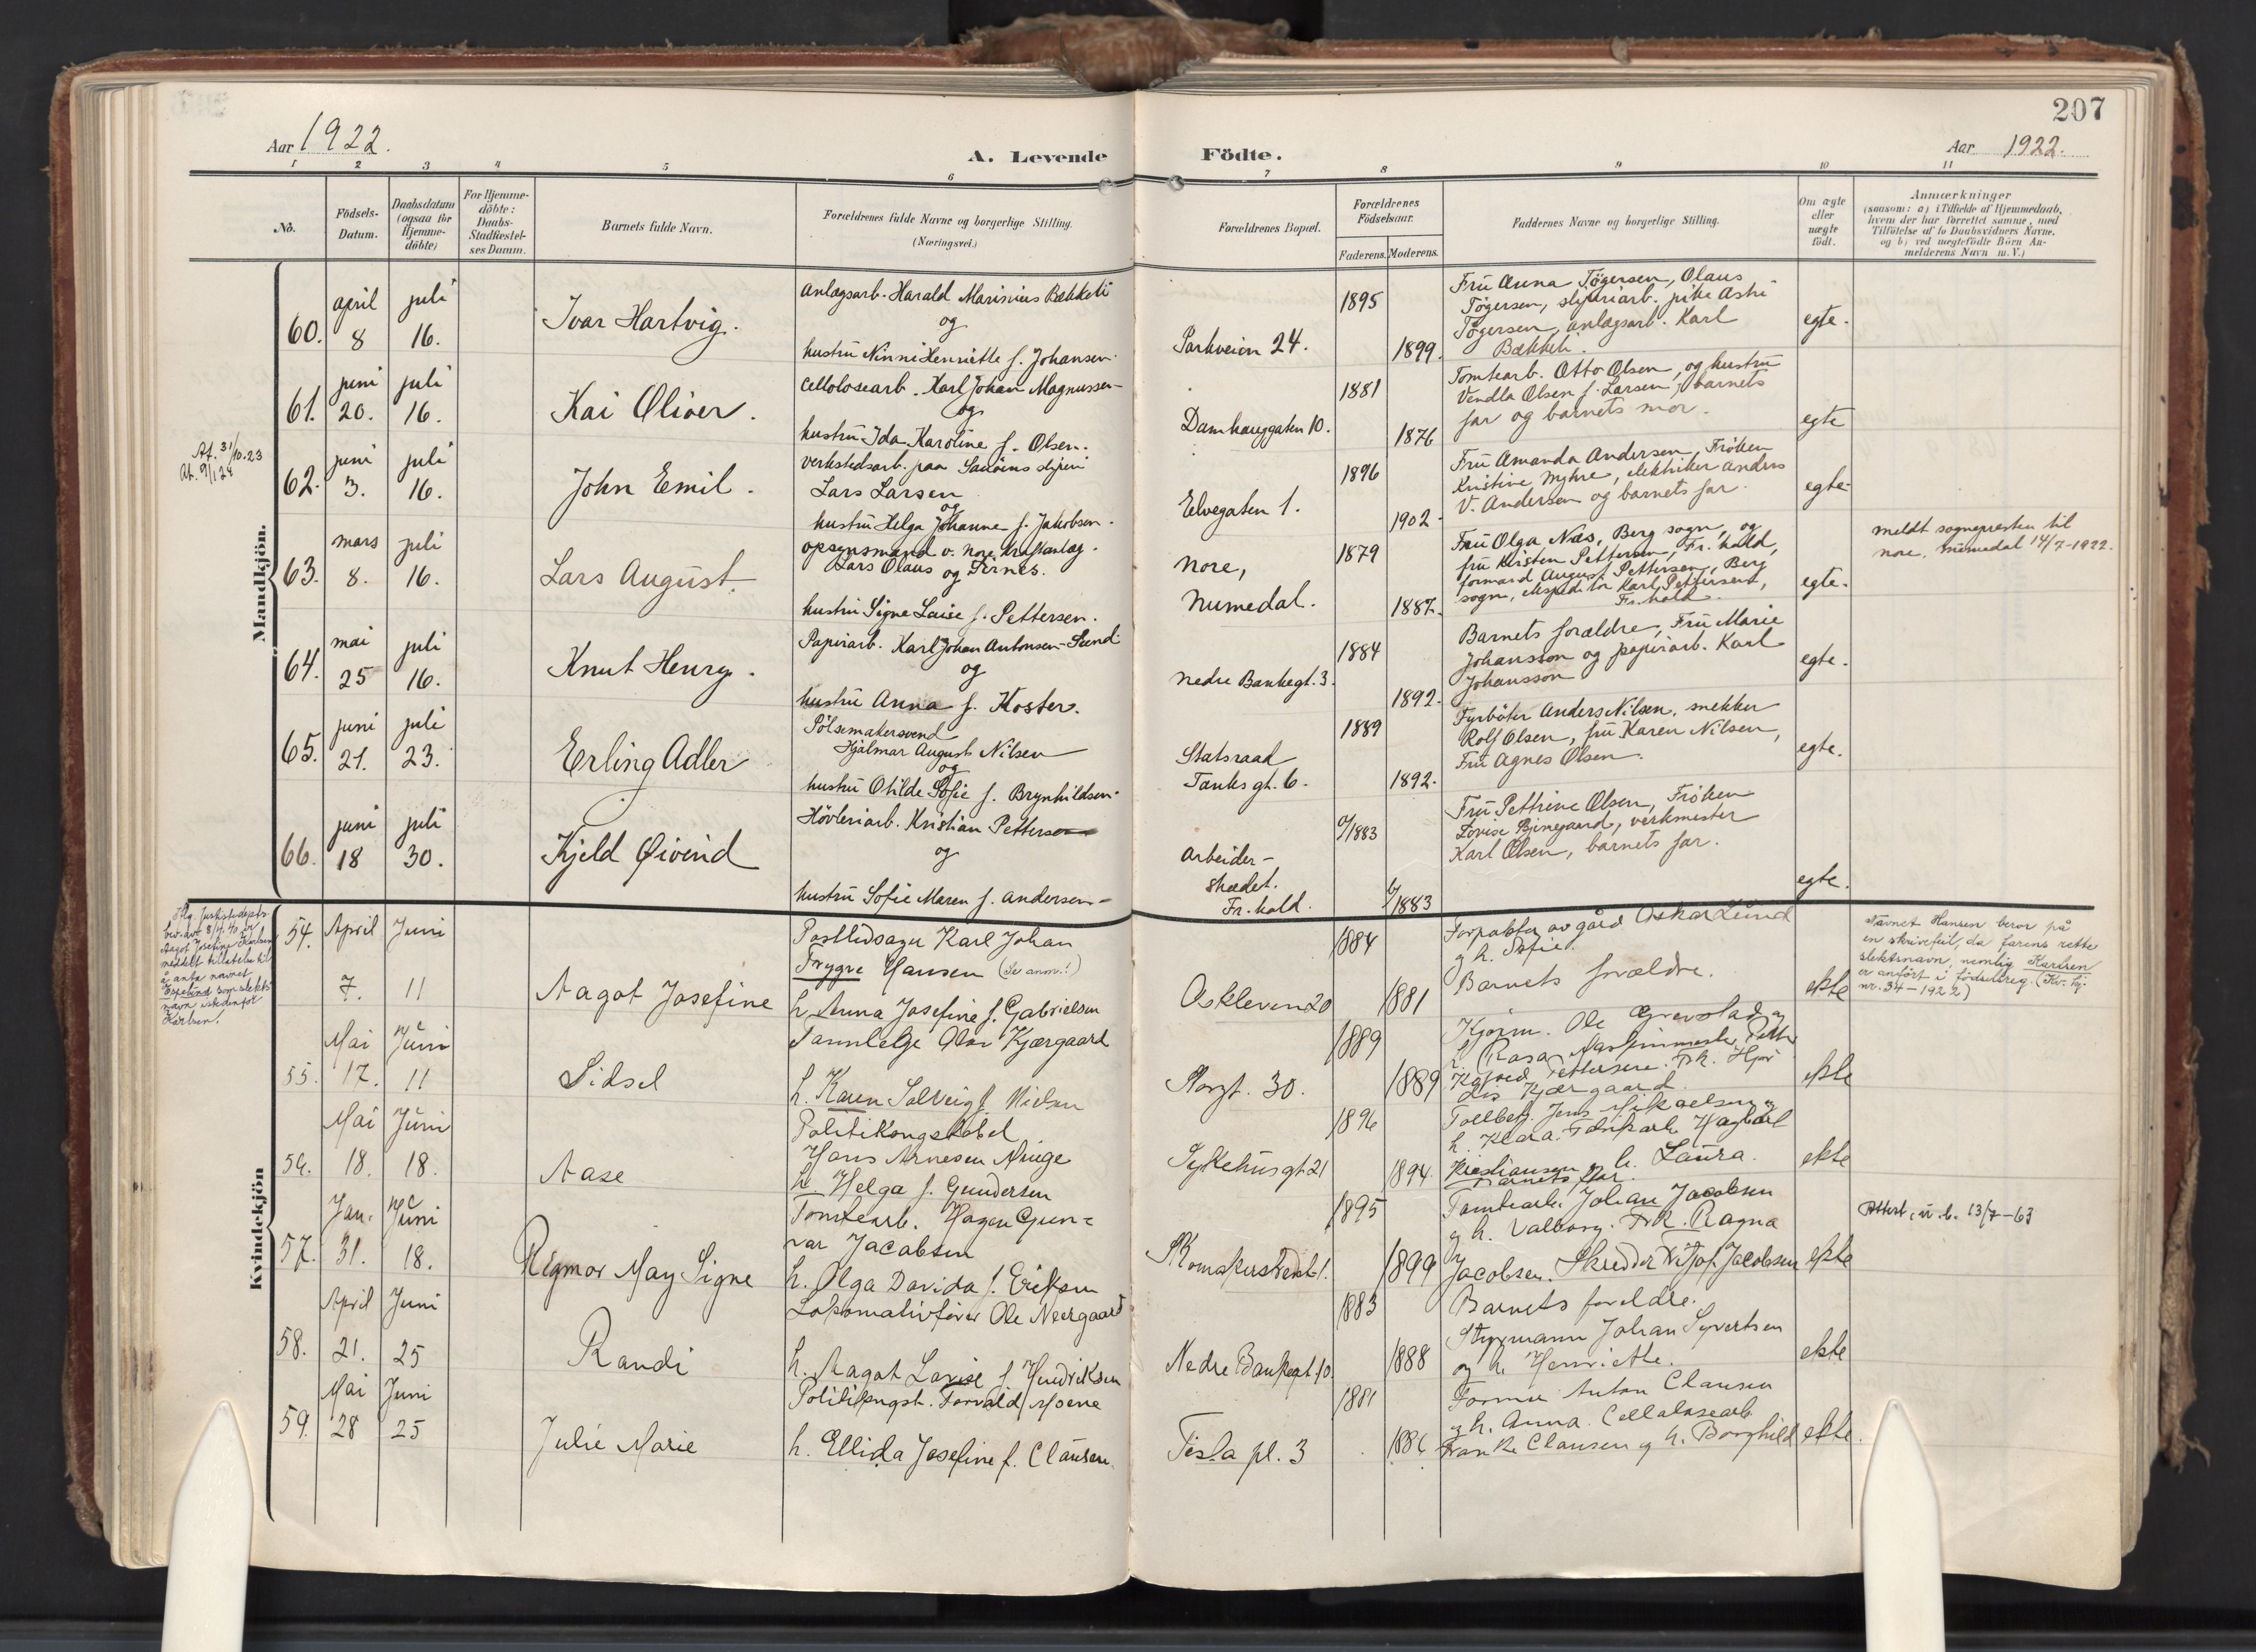 207
Aar 1922.
A. Levende
Födte.
Aar 1922.
1 2 3 4 5 6 7 8 9 10 11
No.
Födsels-
Datum.
Daabsdatum
(ogsaa for
Hjemme-
döbte)
For Hjemme-
döbte:
Daabs-
Stadfæstel-
ses Datum.
Barnets fulde Navn.
Forældrenes fulde Navne og borgerlige Stilling.
(Næringsvei.)
Forældrenes Bopæl.
Forældrenes
Födselsaar.
Faderens. Moderens.
Faddernes Navne og borgerlige Stilling.
Om ægte
eller
uægte
födt.
Anmærkninger
(saasom: a) i Tilfælde af Hjemmedaab,
hvem der har forrettet samme, med
Tilföielse af to Daabsvidners Navne,
og b) ved uægtefödte Börn An-
melderens Navn m. V.)
Mandkjön.
60.
april
8
juli
16.
Ivar Hartvig.
Anlægsarb. Harald Marinius Bækkeli
og
hustru Ninni Henriette f. Johansen.
Parkveien 24.
1895
1899.
Fru Anna Tögersen, Olaus
Tögersen, sliperiarb. pike Astri
Tögersen, anlægsarb. Karl
Bækkeli.
egte.
61.
juni
20.
juli
16.
Kai Oliver.
Cellolosearb. Karl Johan Magnussen
og
hustru Ida Karoline f. Olsen.
Damhauggaten 10.
1881
1876
Tomtearb. Otto Olsen, og hustru
Vendla Olsen f. Larsen, barnets
far og barnets mor.
egte
At. 31/10.23
At. 9/1 24
62.
juni
3.
juli
16.
John Emil.
Verkstedsarb. paa Saugens sliperi
Lars Larsen
og
hustru Helga Johanne f. Jakobsen.
Elvegaten 1.
1896
1902
Fru Amanda Andersen, Fröken
Kristine Myhre, elektriker Anders
V. Andersen og barnets far.
egte
63.
mars
8.
juli
16.
Lars August.
opsynsmand v. Nore Kraftanlæg.
Lars Olaus Fernes.
og
hustru Signe Laise f. Pettersen.
Nore,
Numedal.
1879
1887.
Fru Olga Næs, Berg sogn, og
fru Kirsten Pettersen, Fr.hald,
formand August Pettersen, Berg
sogn, ekspeditör Karl Pettersen,
Fr.hald.
egte.
meldt sogneprestn til
Nore, Numedal 14/7-1922.
64.
mai
25
juli
16.
Knut Henry.
Papirarb. Karl Johan Antonsen-Sund
og
hustru Anna f. Koster.
Nedre Bankegt. 3.
1884
1892.
Barnets forældre, Fru Marie
Johansson og papirarb. Karl
Johansson
egte.
65.
juni
21.
juli
23.
Erling Adler
Pölsemakersvend
Hjalmar August Nilsen
og
hustru Otilde Sofie f. Brynhildsen.
Statsraad
Tanks gt. 6.
1889
1892.
Fyrböter Anders Nilsen, snekker
Rolf Olsen, fru Karen Nilsen,
Fru Agnes Olsen.
egte.
66.
juni
18
juli
30.
Kjeld Øivind
Hövleriarb. Kristian Pettersen
og
hustru Sofie Maren f. Andersen
Arbeider-
stædet.
Fr.hald.
1883
1883
Fru Pettrine Olsen, Fröken
Lovise Bjinegaard, verkmester
Karl Olsen, barnets far.
egte.
Kvindekjön
Aagot Josefine Karlsen
meddelt tillatelse til
å anta navnet
Espelund som slekts-
navn istedenfor
Karlsen.
54.
April
7.
Juni
11
Aagot Josefine
Postbudsager Karl Johan
Trygve Hansen (Se anm.!)
h. Anna Josefine f. Gabrielsen
Oskleven 20
1884
1881
Forpakter av gård Oskar Lund
og h. Sofie.
Barnets forældre.
ekte
Navnet Hansen beror på
en skrivefeil, da farens rette
slektsnavn, nemlig Karlsen
er anført i fødselsreg. (Kv. kj.
nr. 34-1922)
55.
Mai
17.
Juni
11
Sidsel
Tannlege Olav Kjærgaard
h. Karen Solveig f. Nielsen
Storgt. 30.
1889
1889
Kjøpm. Ole Grevstad og
h. Rosa. Maskinmester Petter
Pettersen. Frk.
Lis Kjærgaard.
ekte
56.
Mai
18.
Juni
18.
Aase
Politikonstabel
Hans Arnesen Ninge
h. Helga f. Gundersen
Sykehusgt 21
1896
1894
Tollbetj. Jens Mikaelsen og
h. Klara. Fabrikarb. Hagbart
Kristiansen og h. Laura.
Barnets far.
ekte
57.
Jan.
31.
Juni
18.
Rigmor May Signe
Tomtearb. Hagen Gun-
nar Jacobsen
h. Olga Davida f. Eriksen
1895
1899
Tomtearb. Johan Jacobsen
og h. Valborg. Frk. Ragna
Jacobsen. Skredder Fritjof Jacobsen
ekte
Attest. u. b. 13/7-63
58.
April
21.
Juni
25
Randi
Lokomativfører Ole Neergaard
h. Aagot Lovise f. Hendriksen
Nedre Bankegt 10.
1883
1888
Barnets foreldre.
Styrmann Johan Syvertsen
og h. Henriette.
ekte
59.
Mai
28
Juni
25
Julie Marie
Politikonst. Torvald Moene
h. Ellida Josefine f. Clausen.
Tista pl. 3
1881
1886
Former Anton Clausen
og h. Anna. Cellulosearb.
Franke Clausen og h. Borghild
ekte.